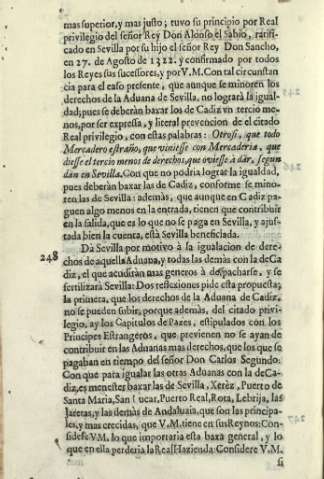 mas superior, y mas justo; tuvo su principio por Real
privilegio del señor Rey Don Alonso el Sabio, ratifi-
cado en Sevilla por su hijo el señor Rey Don Sancho,
en 27. de Agosto de 1322. y confirmado por todos
los Reyes sus sucessores, y por V.M. Con tal circunstan
cia para el caso presente, que aunque se minoren los
derechos de la Aduana de Sevilla, no lograrà la igual-
dad; pues se deberàn baxar los de Cadiz vn tercio me-
nos, por ser expressa, y literal prevencion de el citado
Real privilegio, con estas palabras: Otrosi, que todo
Mercadero estraño, que viniesse con Mercaderia, que
diesse el tercio menos de derechos, que oviesse à dàr, segun
dàn en Sevilla. Con que no podria lograr la igualdad,
pues deberàn baxar las de Cadiz, conforme se mino-
ren las de Sevilla: ademàs, que aunque en Cadiz pa-
guen algo menos en la entrada, tienen que contribuir
en la salida, que es lo que no se paga en Sevilla, y ajus-
tada bien la cuenta, està Sevilla beneficiada.
248 Dà Sevilla por motivo à la igualacion de dere-
chos de aquella Aduana, y todas las demàs con la de Ca
diz, el que acudiràn mas generos à despacharse, y se
fertilizarà Sevilla: Dos reflexiones pide esta propuesta;
la primera, que los derechos de la Aduana de Cadiz,
no se pueden subir, porque ademàs, del citado privi-
legio, ay los Capitulos de Pazes, estipulados con los
Principes Estrangeros, que previenen no se ayan de
contribuir en las Aduanas mas derechos, que los que se
pagaban en tiempo del señor Don Carlos Segundo:
Con que para igualar las otras Aduanas con la de Ca-
diz, es menester baxar las de Sevilla, Xerèz, Puerto de
Santa Maria, San Lucar, Puerto Real, Rota, Lebrija, las
y las demàs de Andaluzia, que son las principa-
les, y mas crecidas, que V.M. tiene en sus Reynos: Con-
sidere V.M. lo que importaria esta baxa general, y lo
que en ella perderia la Real Hazienda: Considere V.M.
si